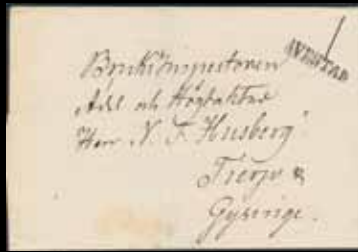 AVESTAD
Bruksinspectoren
Ädel och Högtaktad
Herr N. F. Husberg
Tierp &
Gysinge.